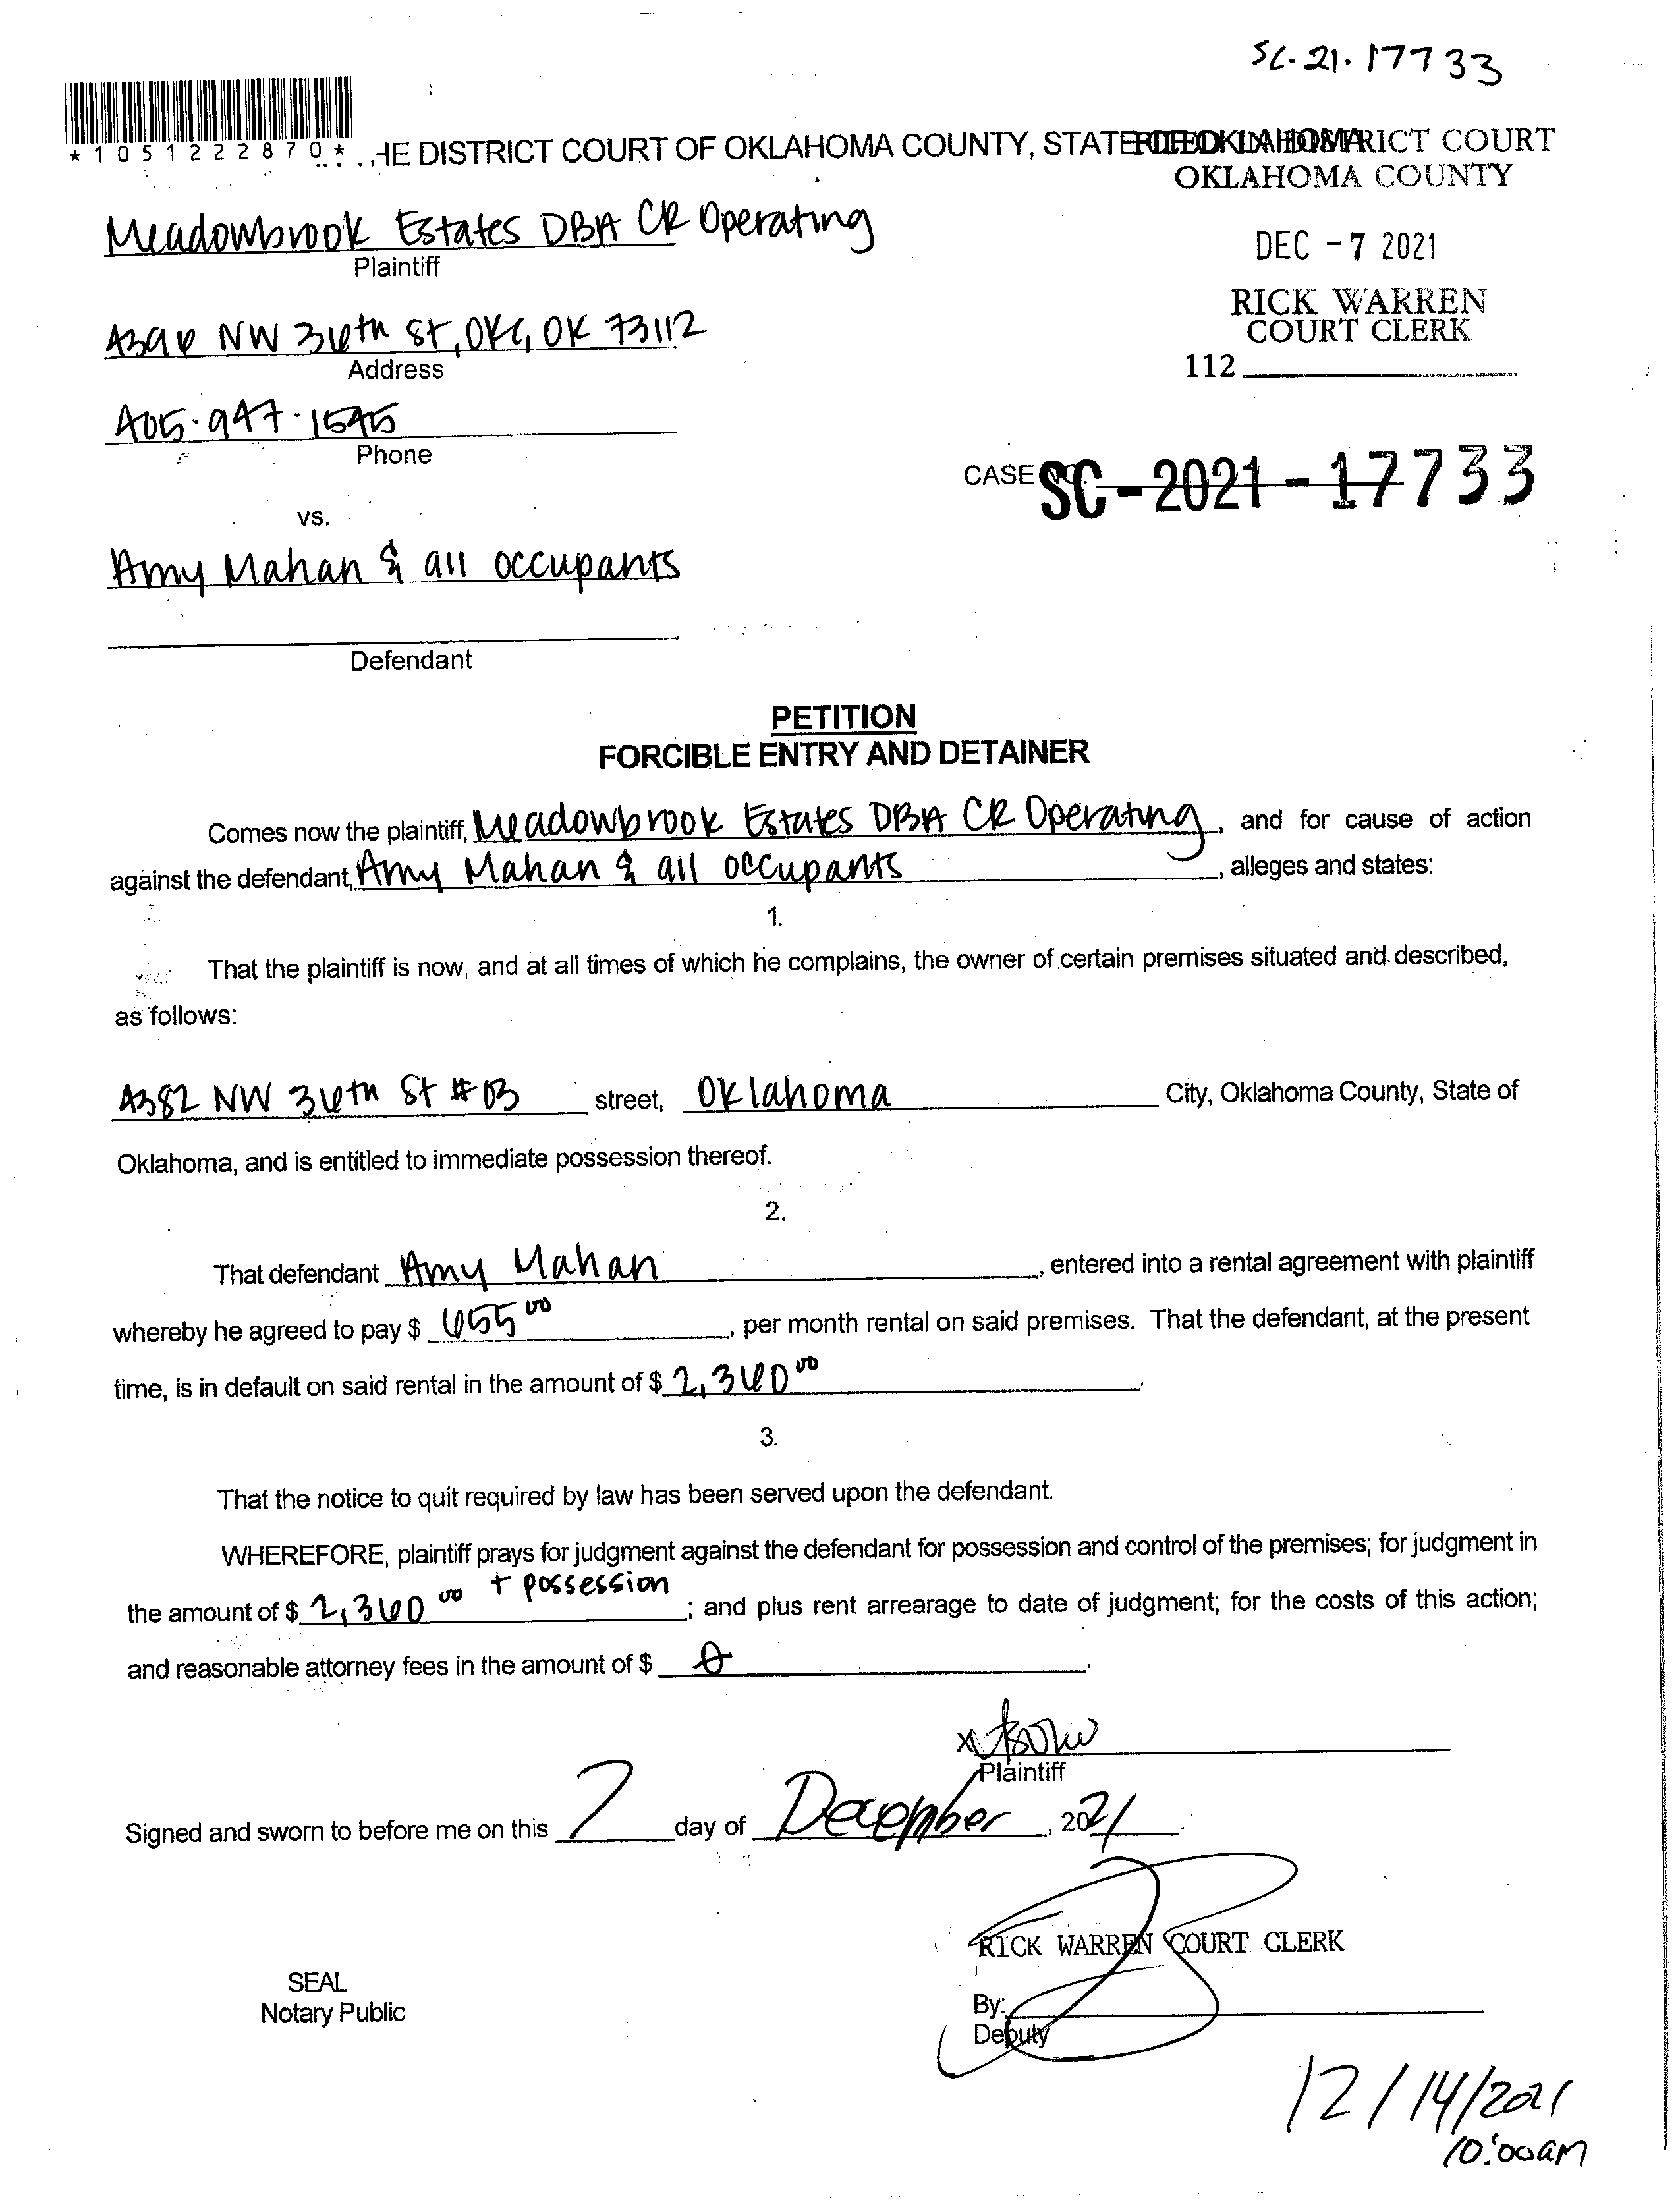 SC-21-17733
*1051222870*
HE DISTRICT COURT OF OKLAHOMA COUNTY, STATE OF OKLAHOMA
FILED IN DISTRICT COURT
OKLAHOMA COUNTY
DEC -7 2021
RICK WARREN
COURT CLERK
112
Meadowbrook Estates DBA CR Operating
Plaintiff
4396 NW 36th St, OKC, OK 73112
Address
405-947-1545
Phone
CASE NO. SC-2021-17733
vs.
Amy Mahan & all occupants
Defendant
PETITION
FORCIBLE ENTRY AND DETAINER
Comes now the plaintiff, Meadowbrook Estates DBA CR Operating, and for cause of action
against the defendant, Amy Mahan & all occupants, alleges and states:
1.
That the plaintiff is now, and at all times of which he complains, the owner of certain premises situated and described,
as follows:
4382 NW 36th St #03 street, Oklahoma City, Oklahoma County, State of
Oklahoma, and is entitled to immediate possession thereof.
2.
That defendant Amy Mahan, entered into a rental agreement with plaintiff
whereby he agreed to pay $ 655 00, per month rental on said premises. That the defendant, at the present
time, is in default on said rental in the amount of $ 2,360 00.
3.
That the notice to quit required by law has been served upon the defendant.
WHEREFORE, plaintiff prays for judgment against the defendant for possession and control of the premises; for judgment in
the amount of $ 2,360 00 + possession; and plus rent arrearage to date of judgment; for the costs of this action;
and reasonable attorney fees in the amount of $ 0.
X
Plaintiff
Signed and sworn to before me on this 7 day of December, 2021.
RICK WARREN COURT CLERK
SEAL
Notary Public
By:
Deputy
12/14/2021
10:00am